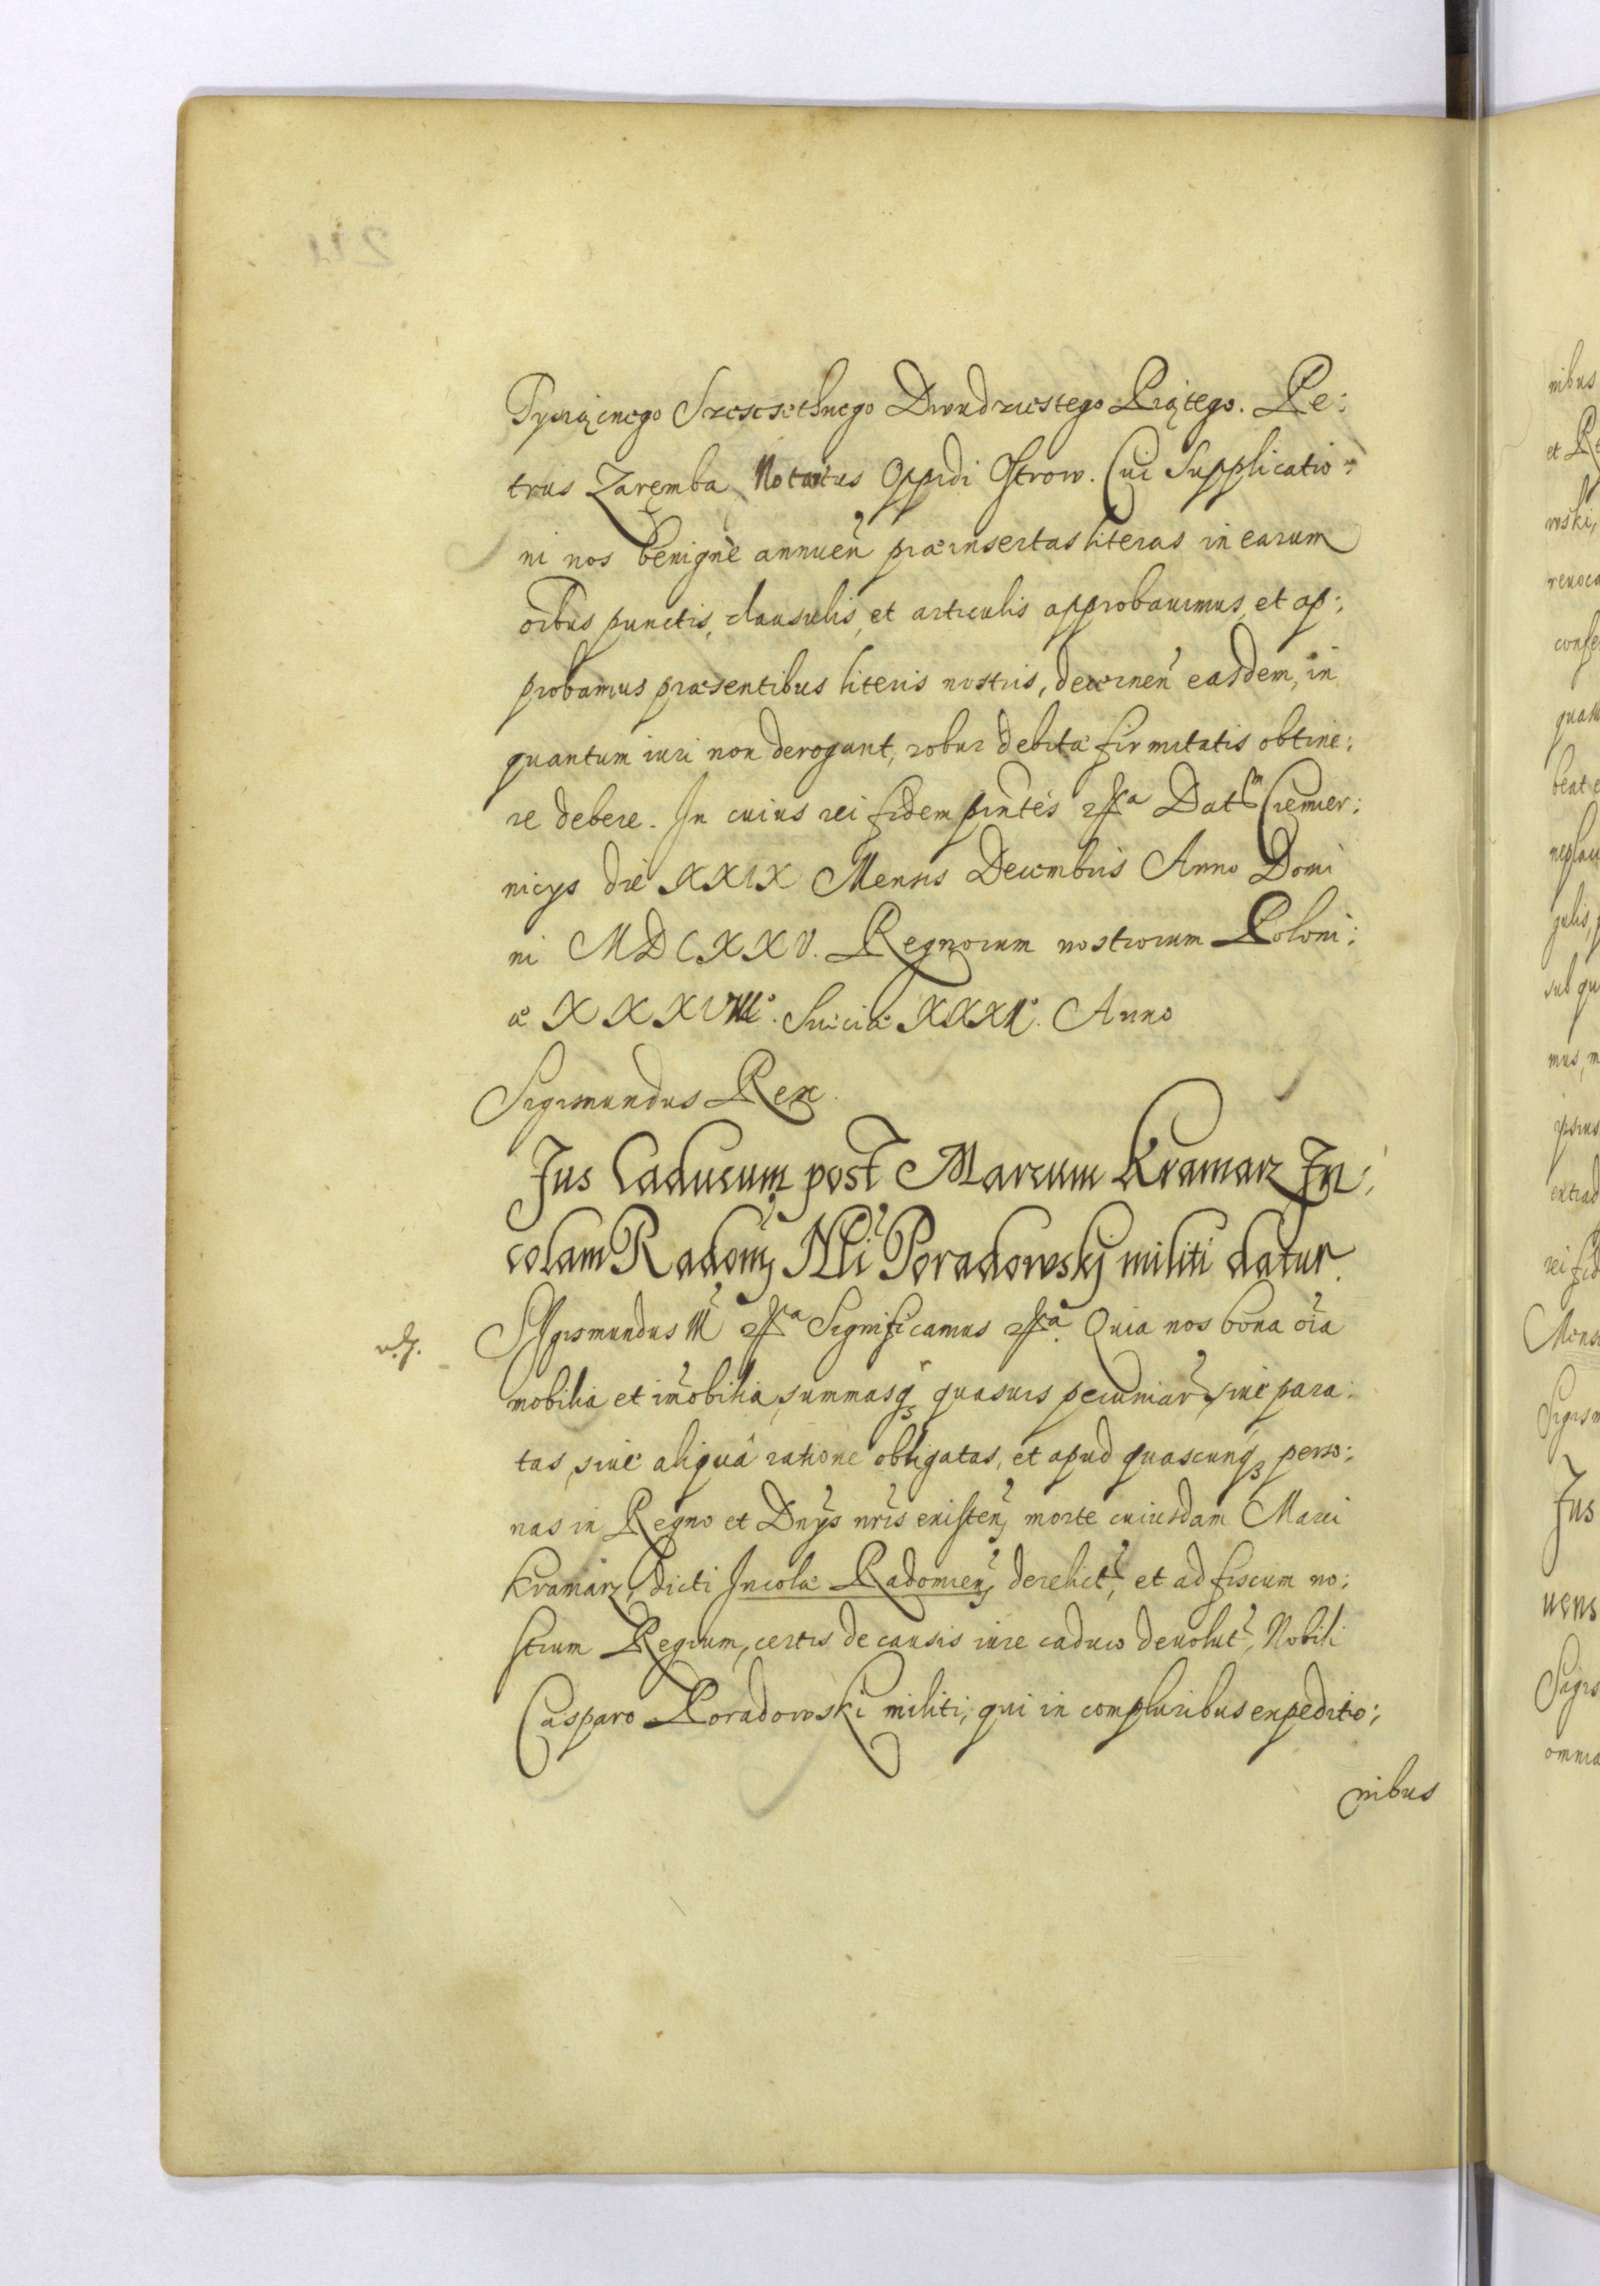 Tysiącnego Szescsethnego Dwudziestego Piątego. Pe:
trus Zaręmba Notarius Oppidi Ostrow. Cui Supplicatio:
ni nos benignè annuen̄ præinsertas literas in earum
oībus punctis, clausulis, et articulis approbauimus, et ap:
probamus præsentibus literis nostris, decernen̄ easdem, in
quantum iuri non derogant, robur debitæ firmitatis obtine:
re debere. In cuius rei fidem pn̄tes etc̃a Datm̃ Cremer:
nicys die XXIX Mensis Decembris Anno Domi
ni MDCXXV. Regnorum nostrorum Poloni:
æ XXXVIII°. Sueciæ XXXII°. Anno
Sigismundus Rex.
Jus Caducum post Marcum Kramarz In:
colam Radom̃ Nli Poradowskj militi datur.
Sigismundus III etc̃a Significamus etc̃a. Quia nos bona oīa
mobilia et im̄obilia, summasq3 quasuis pecuniar̃, siue para:
tas, siue aliquâ ratione obligatas, et apud quascunq3 perso:
nas in Regno et Dn̄ys nr̄is existen̄, morte cuiusdam Marci
Kramarz, dicti Incolæ Radomien̄, derelict̃, et ad fiscum no:
strum Regium, certis de causis iure caduco deuolut̃, Nobili
Casparo Poradowski militi, qui in compluribus expeditio:
nibus